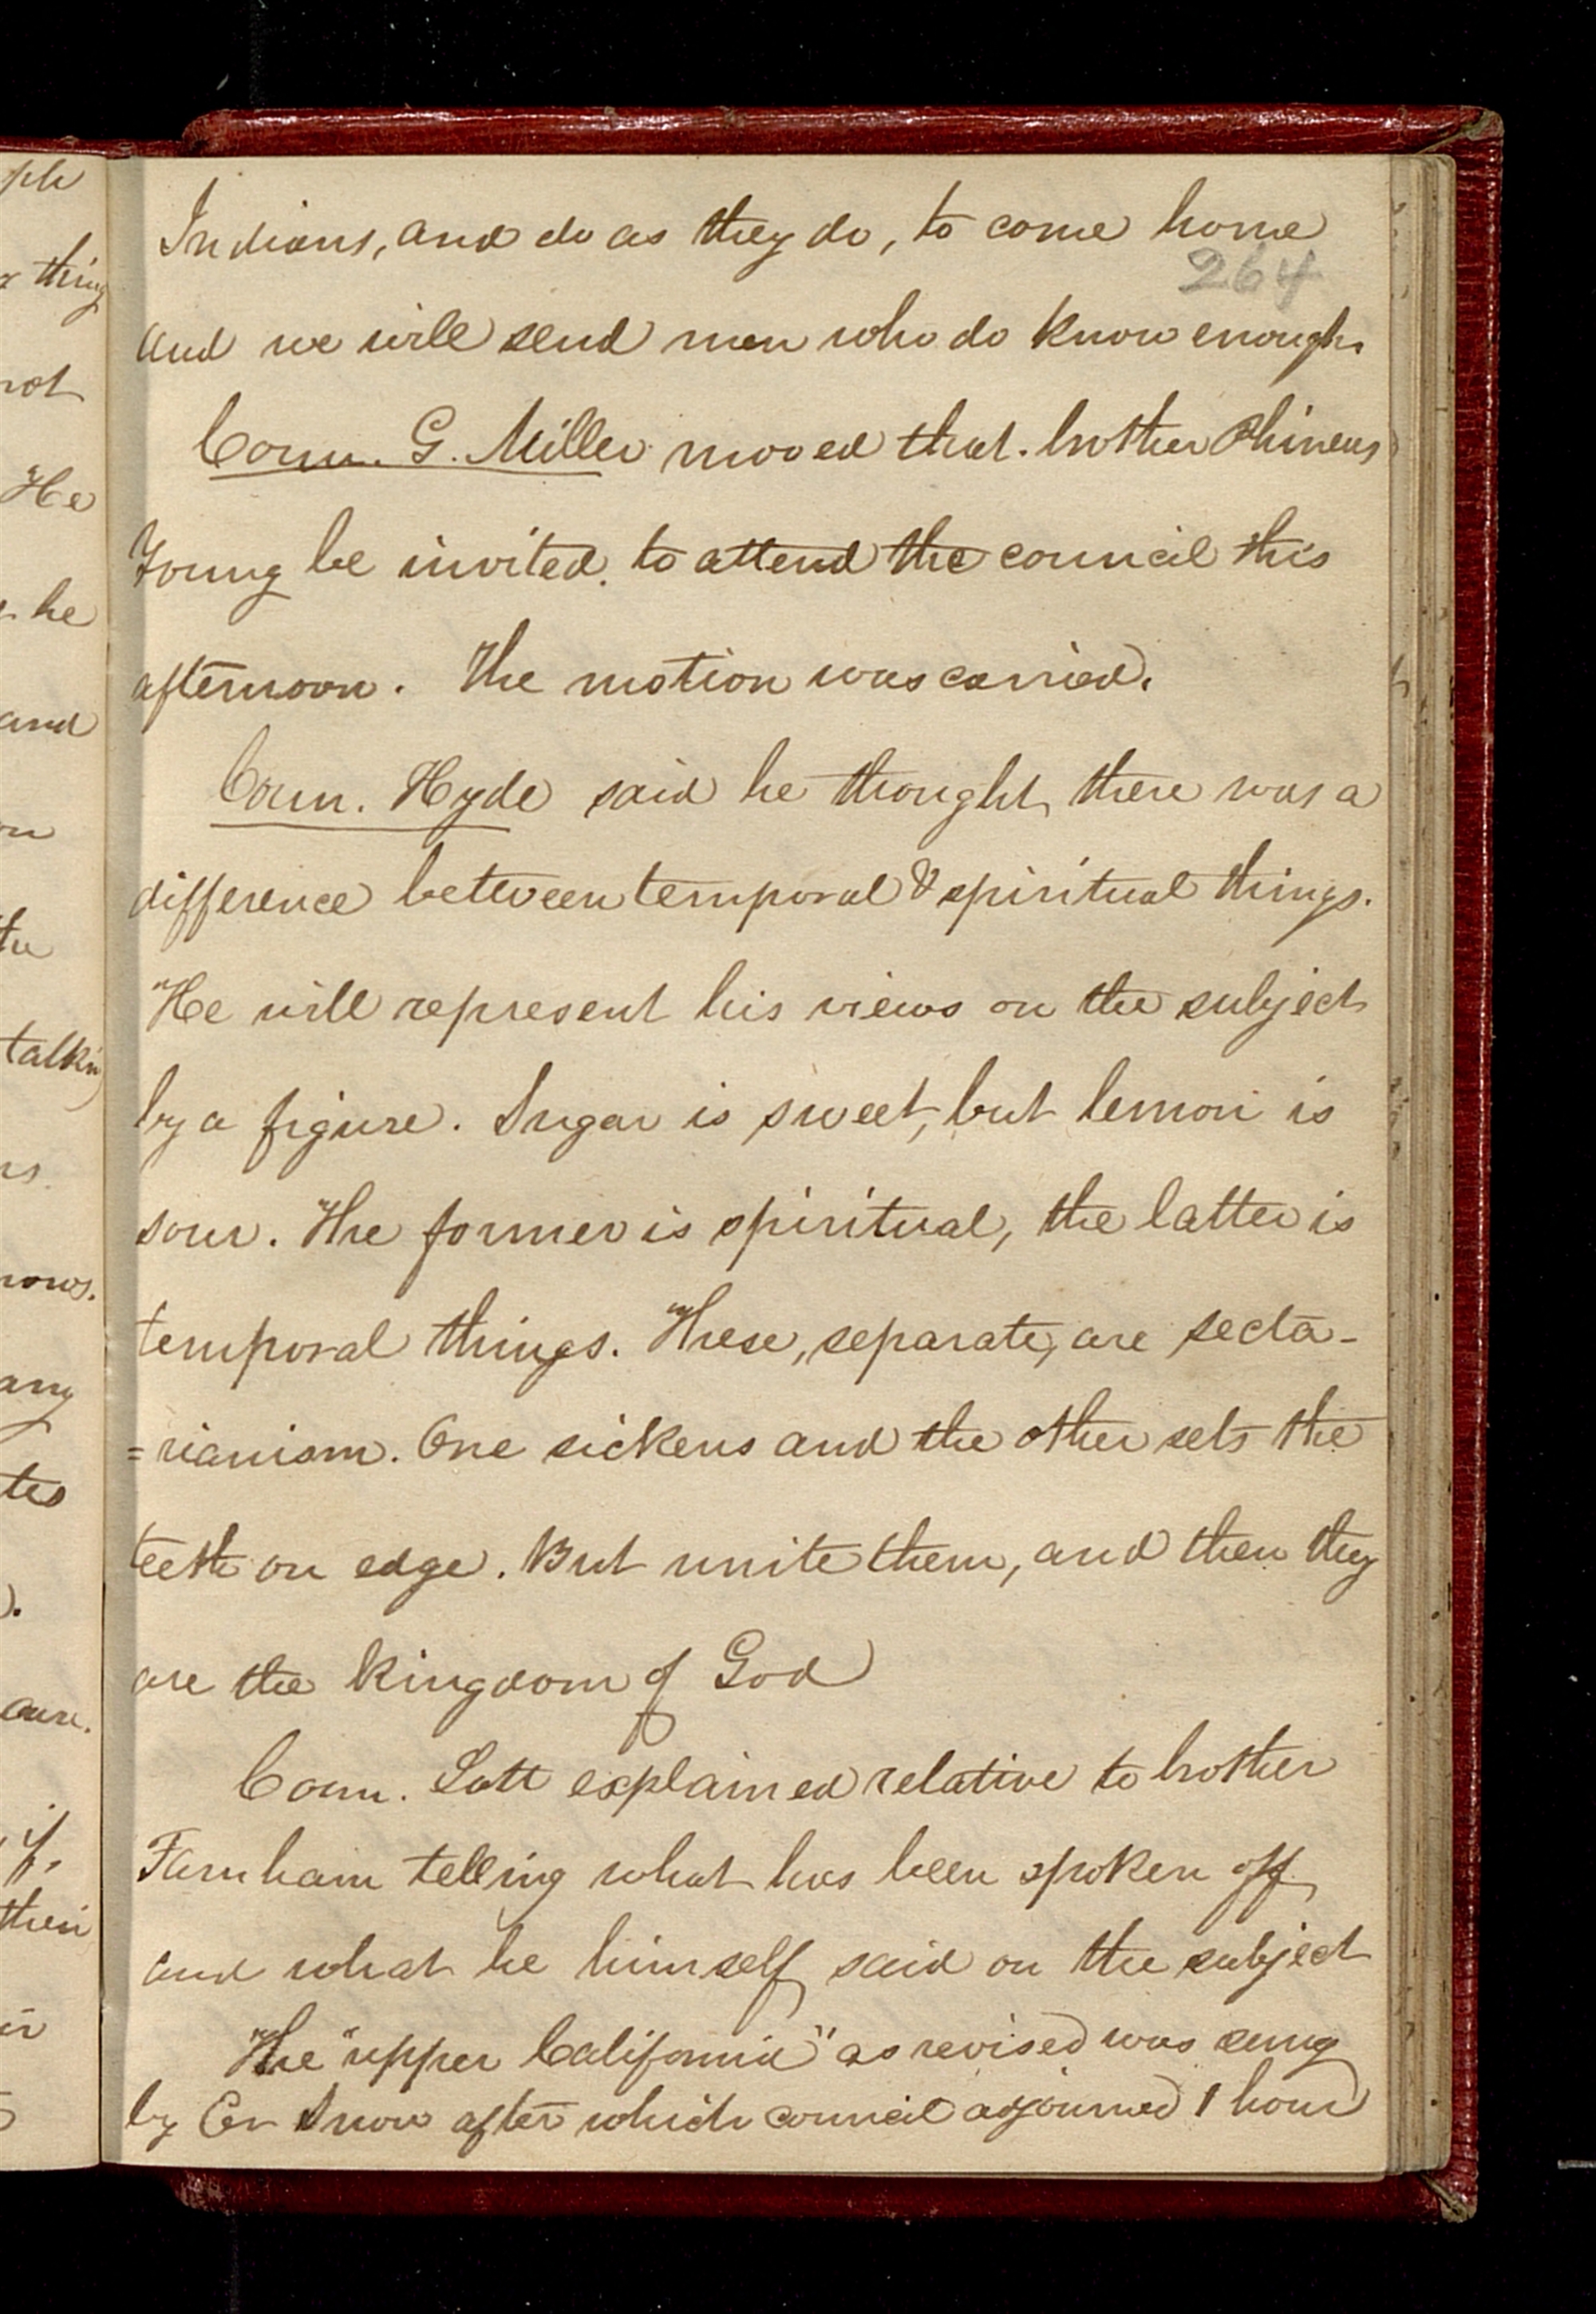 Indians, and do as they do, to come home
264
and we will send men who do know enough.
Coun. G. Miller moved that. brother Phineas
Young be invited. to attend the council this
afternoon. The motion was carried.
Coun. Hyde said he thought there was a
difference between temporal & spiritual things.
He will represent his views on the subject
by a figure. Sugar is sweet, but lemon is
sour. The former is spiritual, the latter is
temporal things. These, separate, are secta-
=rianism. One sickens and the other sets the
teeth on edge. But unite them, and then they
are the kingdom of God
Coun. Lott explained relative to brother
Farnham telling what has been spoken off
and what he himself said on the subject
The "upper California" as revised was sung
by Er Snow after which council adjourned 1 hour
thing
not
He
he
and
talkin
any
tes
if,
their